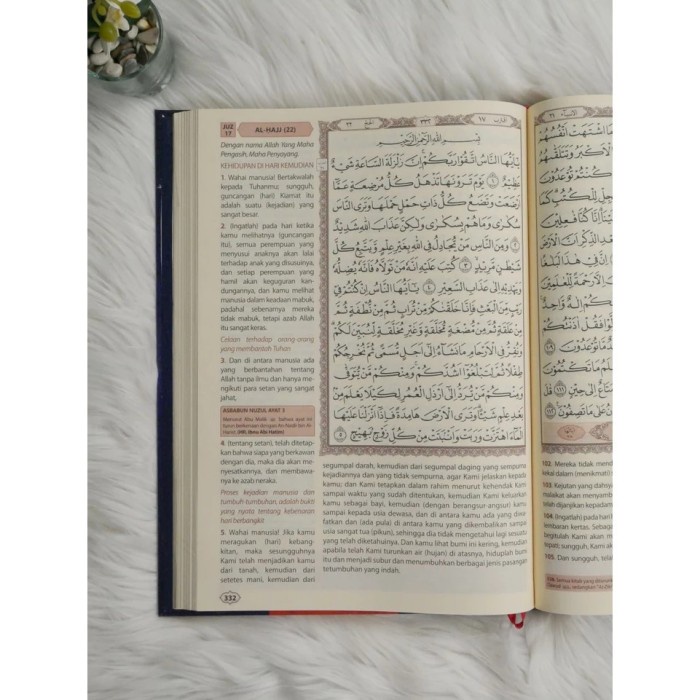 JUZ
17
AL-HAJJ (22)
Dengan nama Allah Yang Maha
Pengasih, Maha Penyayang.
KEHIDUPAN DI HARI KEMUDIAN
1. Wahai manusia! Bertakwalah
kepada Tuhanmu; sungguh,
guncangan (hari) Kiamat itu
adalah suatu (kejadian) yang
sangat besar.
2. (Ingatlah) pada hari ketika
kamu melihatnya (guncangan
itu), semua perempuan yang
menyusui anaknya akan lalai
terhadap anak yang disusuinya,
dan setiap perempuan yang
hamil akan keguguran kan-
dungannya, dan kamu melihat
manusia dalam keadaan mabuk,
padahal sebenarnya mereka
tidak mabuk, tetapi azab Allah
itu sangat keras.
Celaan terhadap orang-orang
yang membantah Tuhan
3. Dan di antara manusia ada
yang berbantahan tentang
Allah tanpa ilmu dan hanya me-
ngikuti para setan yang sangat
jahat,
ASBABUN NUZUL AYAT 3
4. (tentang setan), telah ditetap-
kan bahwa siapa yang berkawan
dengan dia, maka dia akan me-
nyesatkannya, dan membawa-
nya ke azab neraka.
Proses kejadian manusia dan
tumbuh-tumbuhan, adalah bukti
yang nyata tentang kebenaran
hari berbangkit
5. Wahai manusia! Jika kamu
meragukan (hari) kebang-
kitan, maka sesungguhnya
Kami telah menjadikan kamu
dari tanah, kemudian dari
setetes mani, kemudian dari
332
١٧ ٣٣٢ الحج ٢٢
بِسْمِ اللّٰهِ الرَّحْمٰنِ الرَّحِيْمِ
يٰٓاَيُّهَا النَّاسُ اتَّقُوْا رَبَّكُمْۚ اِنَّ زَلْزَلَةَ السَّاعَةِ شَيْءٌ
عَظِيْمٌ ١ يَوْمَ تَرَوْنَهَا تَذْهَلُ كُلُّ مُرْضِعَةٍ عَمَّآ
اَرْضَعَتْ وَتَضَعُ كُلُّ ذَاتِ حَمْلٍ حَمْلَهَا وَتَرَى النَّاسَ
سُكٰرٰى وَمَا هُمْ بِسُكٰرٰى وَلٰكِنَّ عَذَابَ اللّٰهِ شَدِيْدٌ
٢ وَمِنَ النَّاسِ مَنْ يُّجَادِلُ فِى اللّٰهِ بِغَيْرِ عِلْمٍ وَّيَتَّبِعُ كُلَّ
شَيْطٰنٍ مَّرِيْدٍ ٣ كُتِبَ عَلَيْهِ اَنَّهٗ مَنْ تَوَلَّاهُ فَاَنَّهٗ يُضِلُّهٗ
وَيَهْدِيْهِ اِلٰى عَذَابِ السَّعِيْرِ ٤ يٰٓاَيُّهَا النَّاسُ اِنْ كُنْتُمْ فِيْ
رَيْبٍ مِّنَ الْبَعْثِ فَاِنَّا خَلَقْنٰكُمْ مِّنْ تُرَابٍ ثُمَّ مِنْ نُّطْفَةٍ ثُمَّ
مِنْ عَلَقَةٍ ثُمَّ مِنْ مُّضْغَةٍ مُّخَلَّقَةٍ وَّغَيْرِ مُخَلَّقَةٍ لِّنُبَيِّنَ لَكُمْۗ
وَنُقِرُّ فِى الْاَرْحَامِ مَا نَشَاۤءُ اِلٰٓى اَجَلٍ مُّسَمًّى ثُمَّ نُخْرِجُكُمْ
طِفْلًا ثُمَّ لِتَبْلُغُوْٓا اَشُدَّكُمْۚ وَمِنْكُمْ مَّنْ يُّتَوَفّٰى
وَمِنْكُمْ مَّنْ يُّرَدُّ اِلٰٓى اَرْذَلِ الْعُمُرِ لِكَيْلَا يَعْلَمَ مِنْۢ
بَعْدِ عِلْمٍ شَيْـًٔاۗ وَتَرَى الْاَرْضَ هَامِدَةً فَاِذَآ اَنْزَلْنَا عَلَيْهَا
الْمَاۤءَ اهْتَزَّتْ وَرَبَتْ وَاَنْۢبَتَتْ مِنْ كُلِّ زَوْجٍۢ بَهِيْجٍ ٥
segumpal darah, kemudian dari segumpal daging yang sempurna
kejadiannya dan yang tidak sempurna, agar Kami jelaskan kepada
kamu; dan Kami tetapkan dalam rahim menurut kehendak Kami
sampai waktu yang sudah ditentukan, kemudian Kami keluarkan
kamu sebagai bayi, kemudian (dengan berangsur-angsur) kamu
sampai kepada usia dewasa, dan di antara kamu ada yang diwa-
fatkan dan (ada pula) di antara kamu yang dikembalikan sampai
usia sangat tua (pikun), sehingga dia tidak mengetahui lagi sesuatu
yang telah diketahuinya. Dan kamu lihat bumi ini kering, kemudian
apabila telah Kami turunkan air (hujan) di atasnya, hiduplah bumi
itu dan menjadi subur dan menumbuhkan berbagai jenis pasangan
tetumbuhan yang indah.
الانبياء ٢١
مَا اشْتَهَتْ اَنْفُسُهُمْ
الْاَكْبَرُ وَتَتَلَقّٰىهُمُ
كُنْتُمْ تُوْعَدُوْنَ
لِلْكُتُبِ كَمَا
اِنَّا كُنَّا فٰعِلِيْنَ
بَعْدِ الذِّكْرِ اَنَّ الْاَرْضَ
اِنَّ فِيْ هٰذَا لَبَلٰغًا
اِلَّا رَحْمَةً لِّلْعٰلَمِيْنَ
اِلٰهٌ وَّاحِدٌ
فَقُلْ اٰذَنْتُكُمْ
مَّا تُوْعَدُوْنَ ١٠٩
مَا تَكْتُمُوْنَ
وَمَتَاعٌ اِلٰى حِيْنٍ ١١١ قٰلَ
عَلٰى مَا تَصِفُوْنَ ١١٢
102. Mereka tidak mende
kekal dalam (menikmati)
103. Kejutan yang dahsya
malaikat akan menyamb
telah dijanjikan kepadam
104. (Ingatlah) pada hari
lembaran kertas. Sebaga
Begitulah Kami akan m
tepati; sungguh, Kami ak
105. Dan sungguh, telah